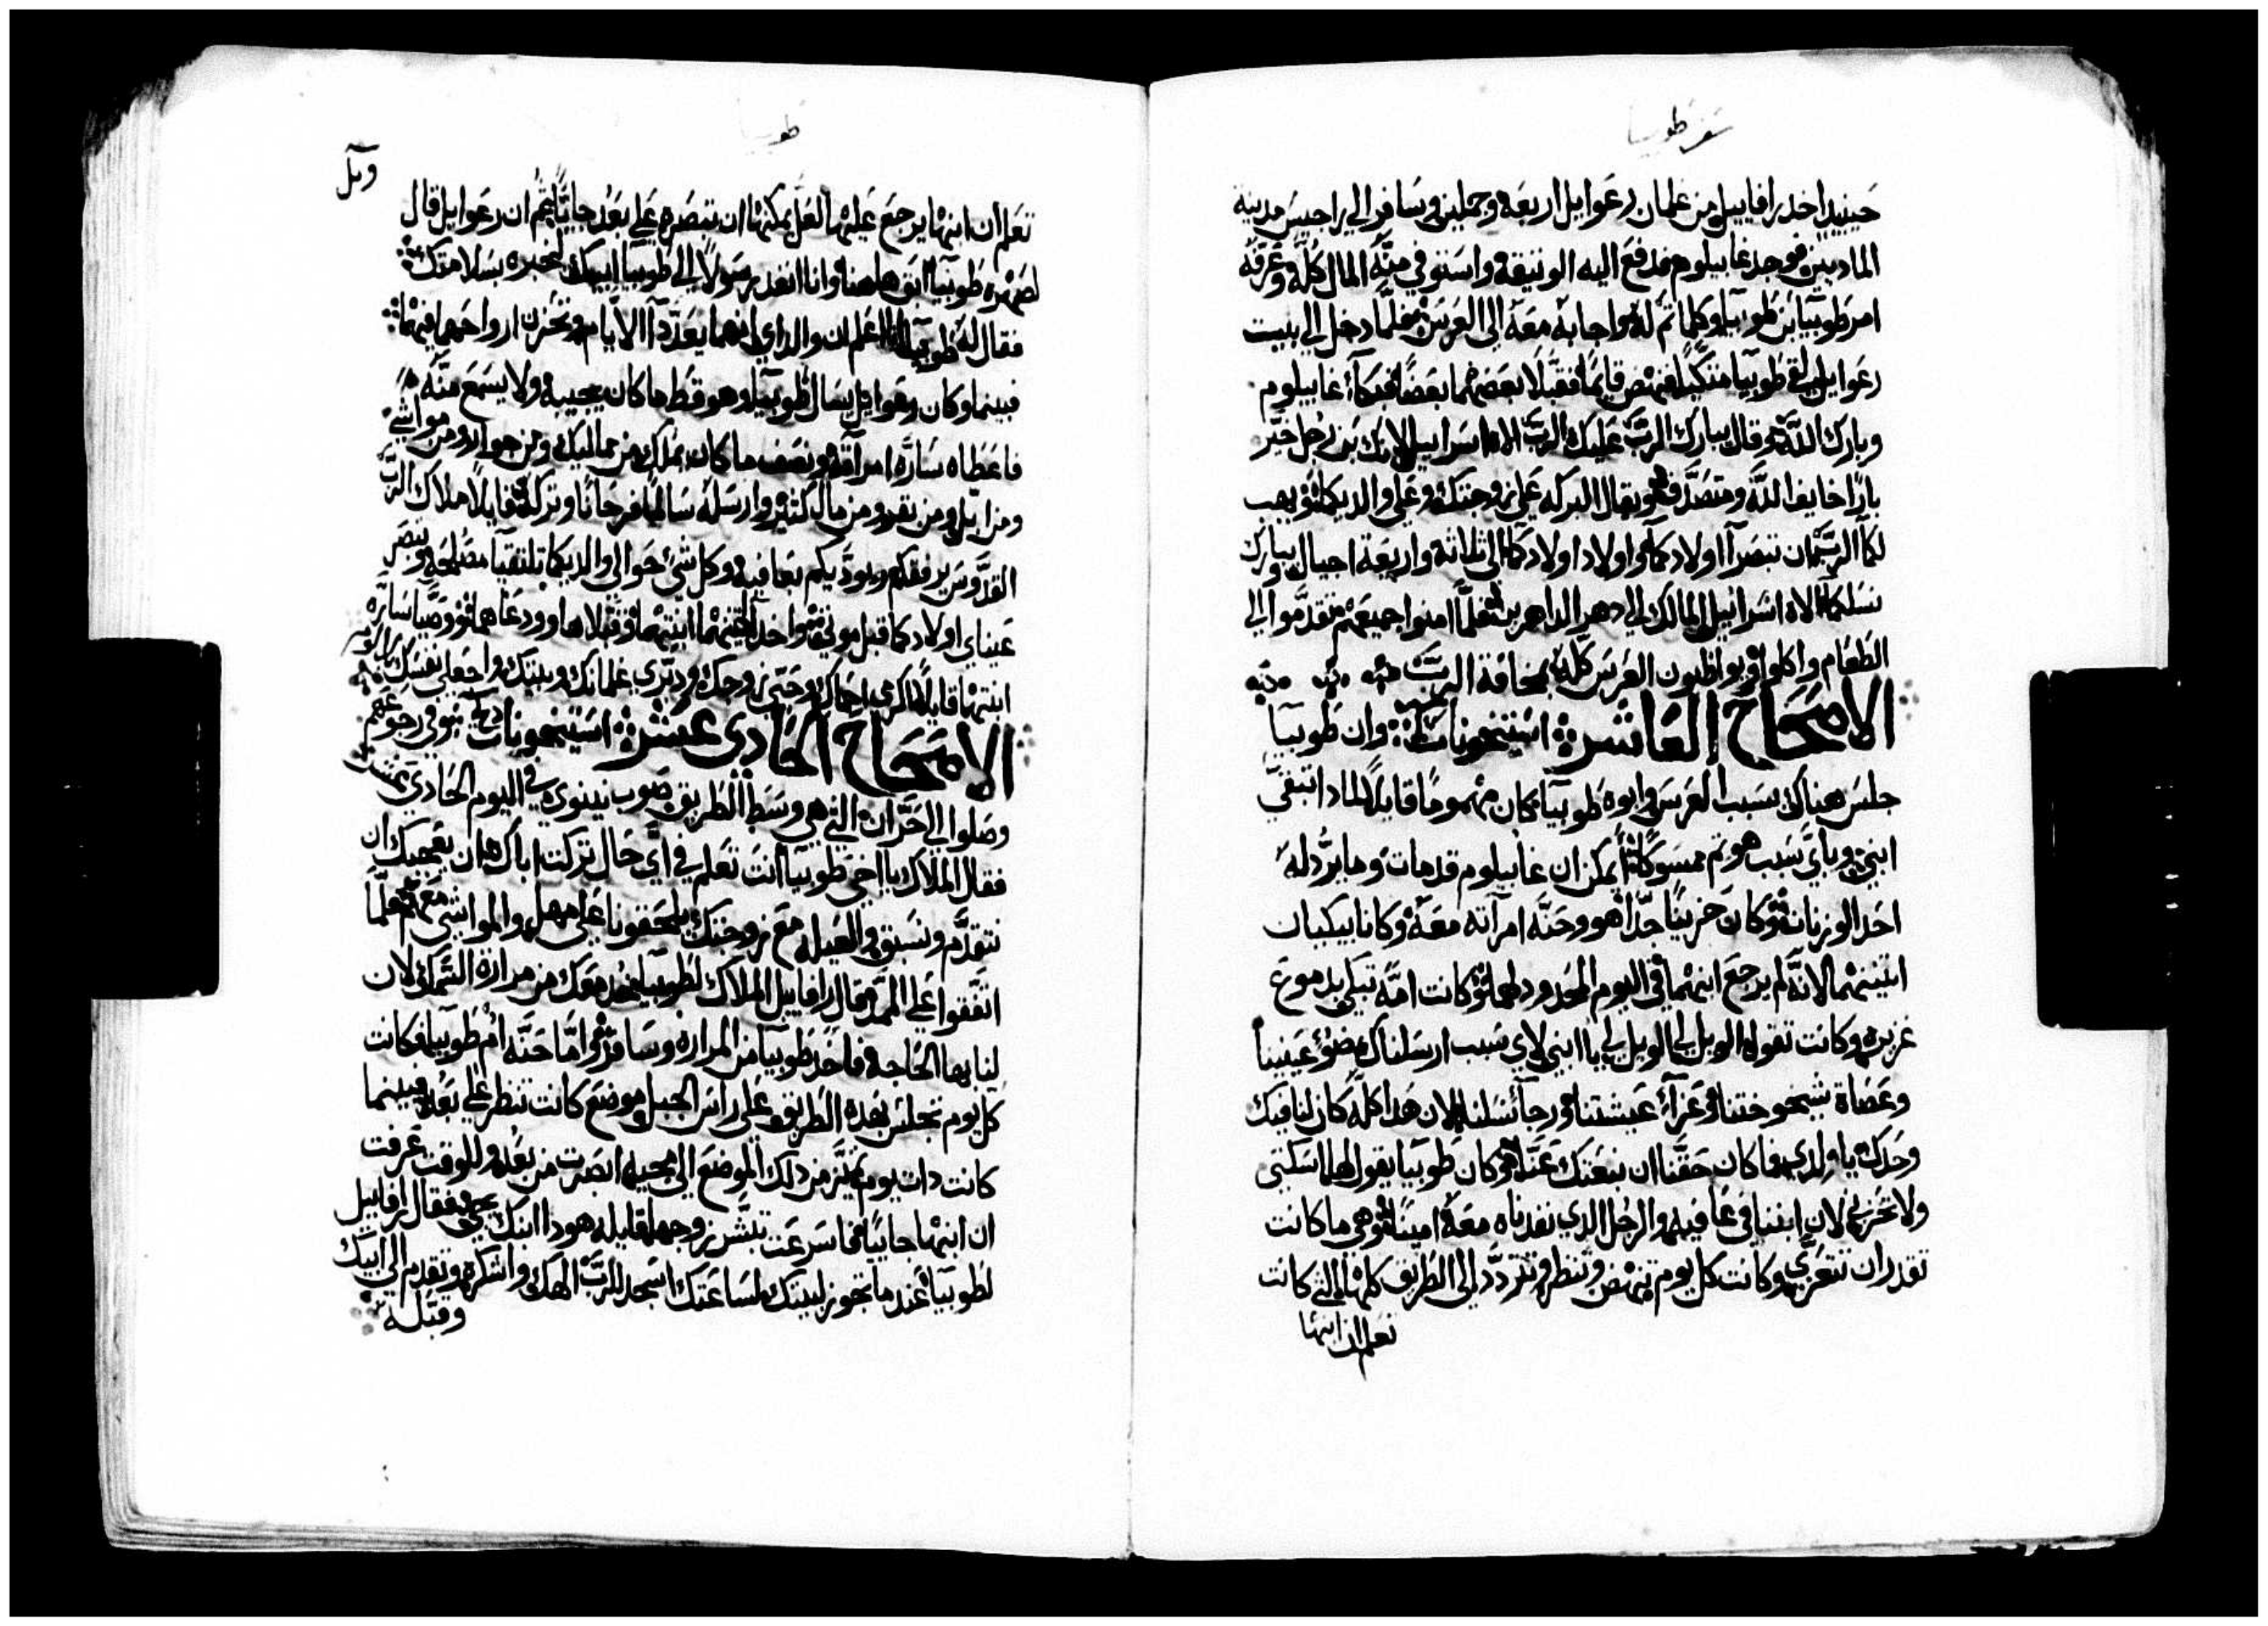 سفر طوبيا
حينيد اخد رافاييل من غلمان رعوايل اربعه وجملين وسافر الي راجيس مدينة
الماديين فوجد غابيلوم فدفع اليه الوتيقه واستوفي منه المال كله وعرفه
امر طوبيا بن طوبيا وكلما تم له واجابه معه الي العرس فلما دخل الي بيت
رعوايل لقي طوبيا متكيا فنهض قايما فقبلا بعضهما بعضا فبكا غابيلوم
وبارك الله وقال يبارك الرب عليك الرب الاه اسراييل لانك بن رجل خير
بارا خايف الله ومتصدق ويقال البركه علي زوجتك وعلي والديكما ويهب
لكما الرب ان تبصرا اولادكما واولاد اولادكما الي ثلاثة واربعة اجيال ويبارك
نسلكما الاه اسراييل المالك الي دهر الداهرين فلما امنوا جميعهم تقدموا الي
الطعام واكلوا ويواظبون العرس كله بمخافة الرب
الاصحاح العاشر استيخونات وان طوبيا
جلس هناك بسبب العرس وابوه طوبيا كان مهموما قايلا لمادا تبقي
ابني وباي سبب هو تم ممسوكا أيمكن ان غابيلوم قد مات وما يرد له
احد الوزنات وكان حزينا جدا هو وحنه امرآته معه وكانا يبكيان
اتنينهما لانه لم يرجع ابنهما في اليوم المحدود لهما وكانت امه تبكي بدموع
غزيره وكانت تقول الويل لي الويل لي يا ابني لاي سبب ارسلناك يا ضؤ عينينا
وعصاة شيخوختنا وعزآء عيشتنا ورجآء نسلنا لان هدا كله كان لنا فيك
وحدك يا ولدي فما كان حقنا ان نبعتك عنا وكان طوبيا يقول لها اسكتي
ولا تحزني لان ابننا في عافيه والرجل الدي نفدناه معه امينا وهي ما كانت
تقدر ان تتعزي وكانت كل يوم تنهض وتنظر وتتردد الي الطريق كلها التي كانت
تعلم ان ابنها
طوبيا
تعلم ان ابنها يرجع عليها لعل يمكنها ان تبصره علي بعد جايا ثم ان رعوايل قال
لصهره طوبيا ابق هاهنا وانا انفد رسولا الي طوبيا ابيك لنخبره بسلامتك
فقال له طوبيا انا اعلم ان والداي انهما يعدا الايام وتحزن ارواحهما فيهما
فبينما وكان رعوايل يسال طوبيا وهو قط ما كان يجيبه ولا يسمع منه
فاعطاه ساره امرآته ونصف ما كان يملك من مماليك ومن جوار ومن مواشي
ومن ابل ومن بقر ومن مال كثير وارسله سالما فرحانا وتركه قايلا ملاك الرب
القدوس يرفقكم ويوديكم بعافيه وكل شئ حوالي والديكما تلتقيا مصلحه وتبصر
عيناي اولادكما قبل موتي واخدا اتنينهما ابنتهما وقبلاها وودعاها ووصيا ساره
ابنتها قايلا اكرمي احماك وحبي زوجك ودبري غلمانك وبيتك واجعلي نفسك
الاصحاح الحادي عشر استيخونات في رجوعهم
وصلوا الي حران التي هي وسط الطريق صوب نينوي في اليوم الحادي عشر
فقال الملاك يا اخي طوبيا انت تعلم في اي حال تركت اباك هل ان يعجبك ان
نتقدم ونسبق والعيله مع زوجتك يلحقونا علي مهل والمواشي معهم فلما
اتفقوا علي المر قال رافاييل الملاك لطوبيا خد معك من مرارة السمك لان
لنا بها الحاجه فاخد طوبيا من المراره وسافر واما حنه ام طوبيا فكانت
كل يوم تجلس بعده الطريق علي راس الجبل وموضع كانت تنظر علي بعد فبينما
كانت دات يوم تميز من دلك الموضع الي مجيه ابصرت من بعد وللوقت عرفت
ان ابنها جاييا فاسرعت تبشر زوجها قايله هودا ابنك يجي فقال رافاييل
لطوبيا عندما تجوز لبيتك لساعتك اسجد للرب الهك واشكره وتقدم الي ابيك
وقبله